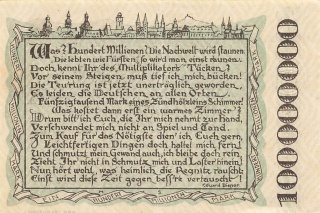 Was? Hundert Millionen? Die Nachwelt wird staunen.
Die lebten wie Fürsten, so wird man einst raunen.
Doch, kennt Ihr des „Multiplikators" Tücken?
Vor seinem Steigen, muß tief ich, mich bücken!
Die Teurung ist jetzt unerträglich geworden,
Es leiden die Deutschen, an allen Orten.
Fünfzigtausend Mark eines Zündhölzleins Schimmer!
Was kostet dann erst ein warmes Zimmer?
Drum bitt' ich Euch, die Ihr mich nehmt zur hand,
Verschwendet mich nicht an Spiel und Tand.
Zum Kauf für das Nötigste dien' ich, Euch gern,
Leichtfertigen Dingen doch haltet mich fern
Und schmutz mein Gewand auch, ich bleibe doch rein,
Zieht Ihr nicht in Schmutz mich und Laster hinein,
Nun hört wohl, was heimlich die Regnitz rauscht:
Einst wird diese Zeit gegen bess're vertauscht!
100000000
HUNDERT
MILLIONEN